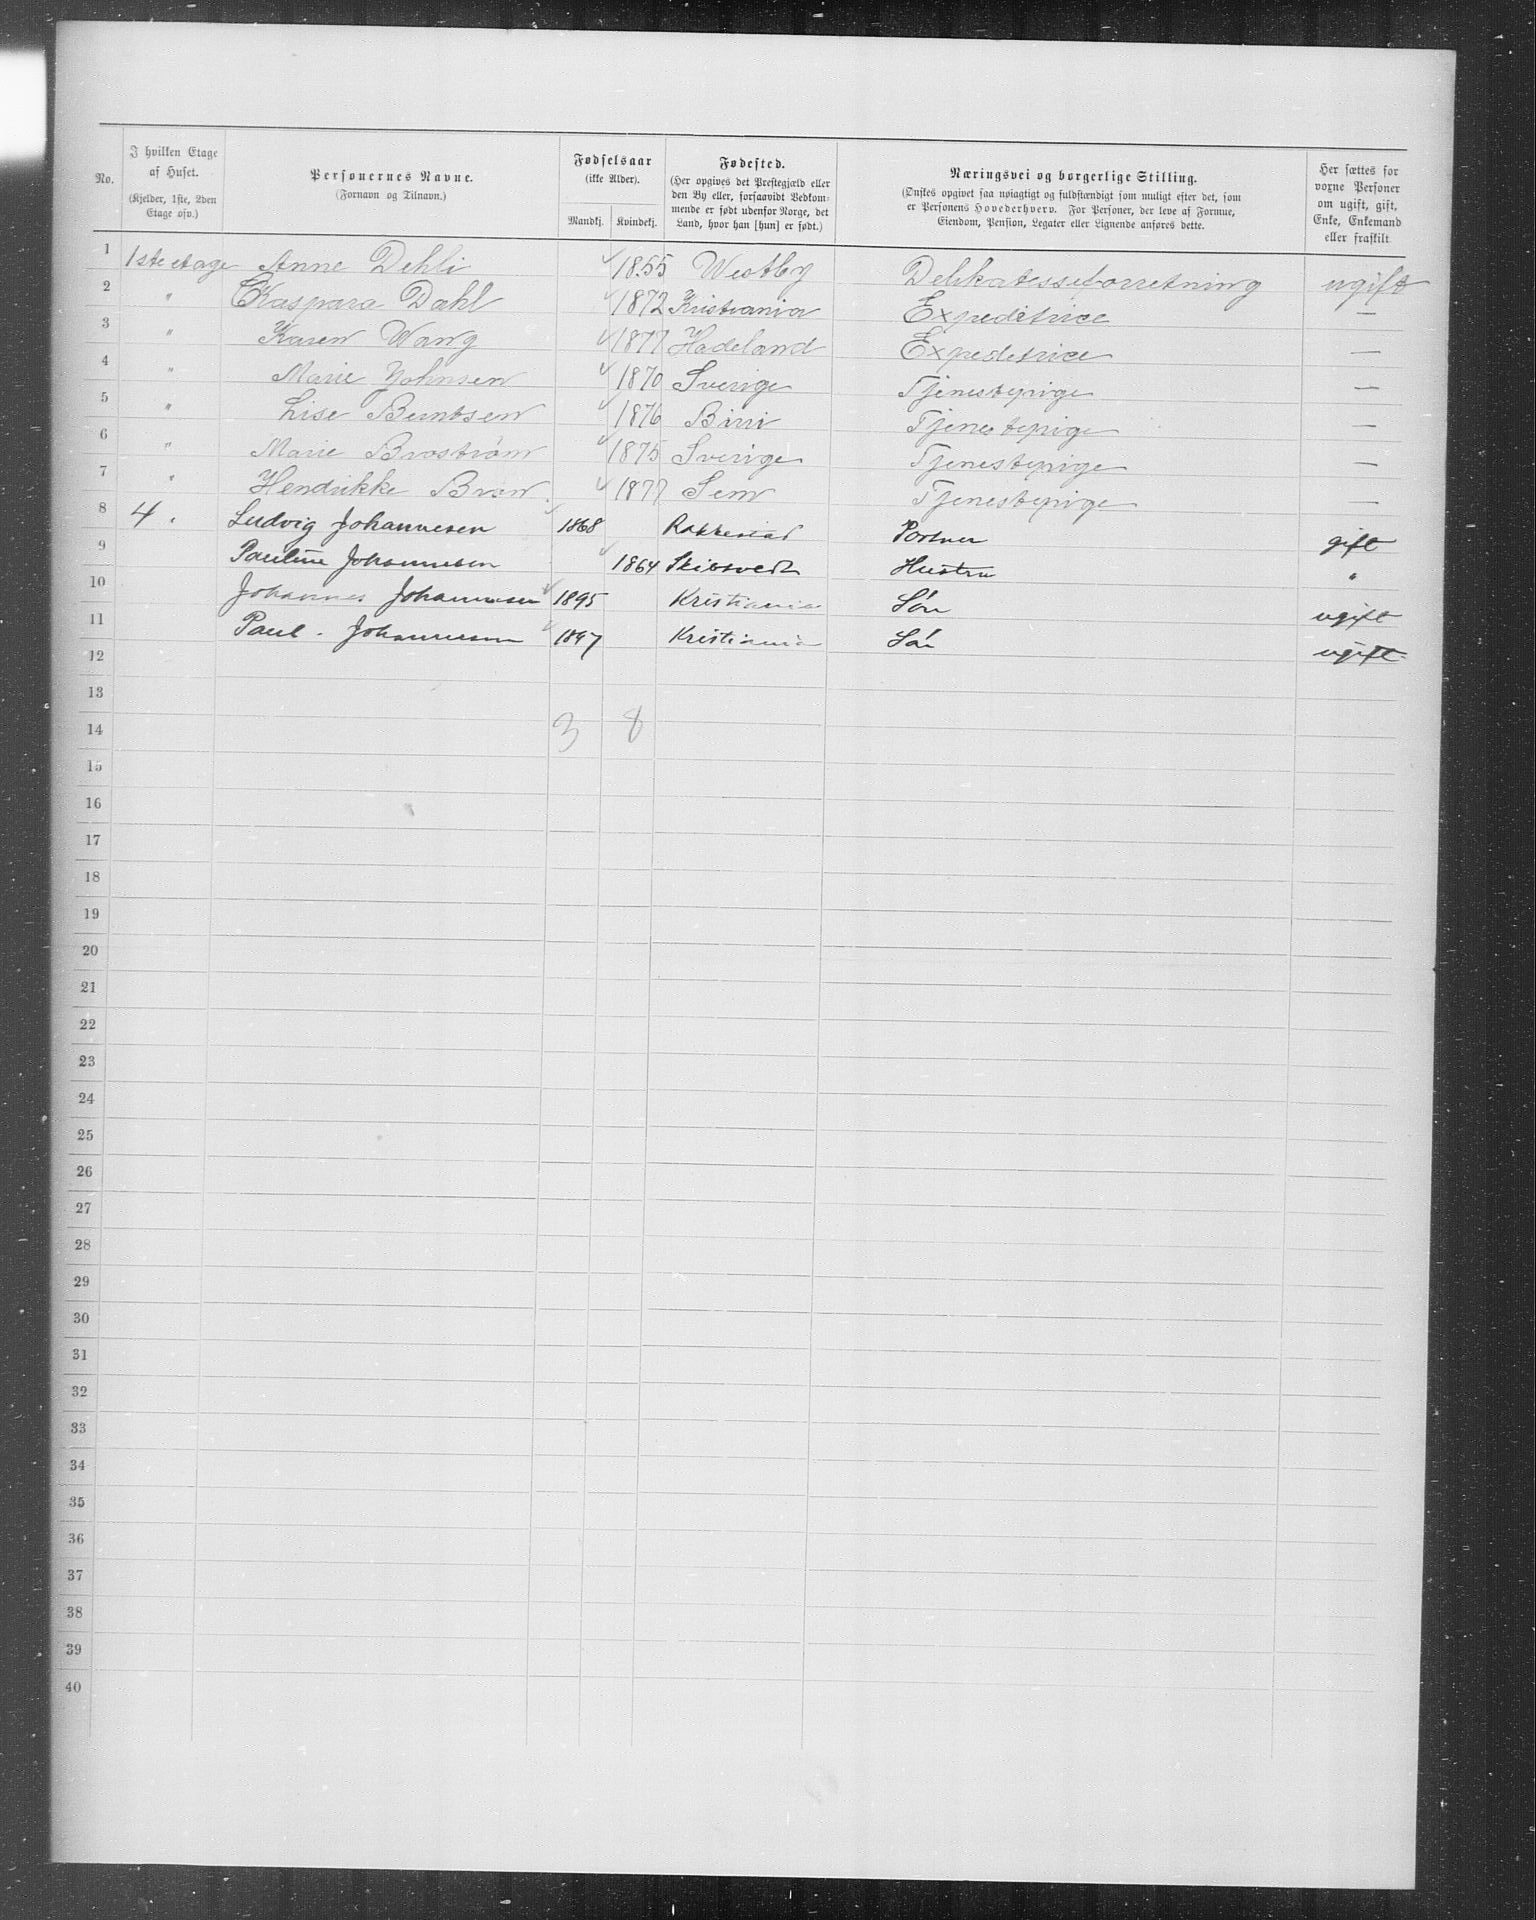 No.
I hvilken Etage af Huset.
(Kjelder, 1ste, 2den Etage osv.)
Personernes Navne.
(Fornavn og Tilnavn.)
Fødselsaar
(ikke Alder).
Mandkj. Kvindekj.
Fødested.
(Her opgives det Prestegjæld eller
den By eller, forsaavidt Vedkom-
mende er født udenfor Norge, det
Land, hvor han [hun] er født.)
Næringsvei og borgerlige Stilling.
(Ønskes opgivet saa nøiagtigt og fuldstændigt som muligt efter det, som
er Personens Hovederhverv. For Personer, der leve af Formue,
Eiendom, Pension, Legater eller Lignende anføres dette.
Her sættes for
voxne Personer
om ugift, gift,
Enke, Enkemand
eller fraskilt
1 1ste etage Anne Dehli 1855 Westby Delikatesseforretning ugift
2 " Kaspara Dahl 1872 Kristiania Expeditrice —
3 " Karen Wang 1877 Hadeland Expeditrice —
4 " Marie Johnsen 1870 Sverige Tjenestepige —
5 " Lise Berntsen 1876 Birri Tjenestepige —
6 " Marie Broström 1875 Sverige Tjenestepige —
7 " Hendrikke Bruun 1877 Sem Tjenestepige —
8 4 . Ludvig Johannesen 1868 Rakkestad Portner gift
9 Pauline Johannesen 1864 Skibtvedt Hustru "
10 Johannes Johannesen 1895 Kristiania Søn ugift
11 Paul Johannesen 1897 Kristiania Søn ugift
12
13
14 3 8
15
16
17
18
19
20
21
22
23
24
25
26
27
28
29
30
31
32
33
34
35
36
37
38
39
40